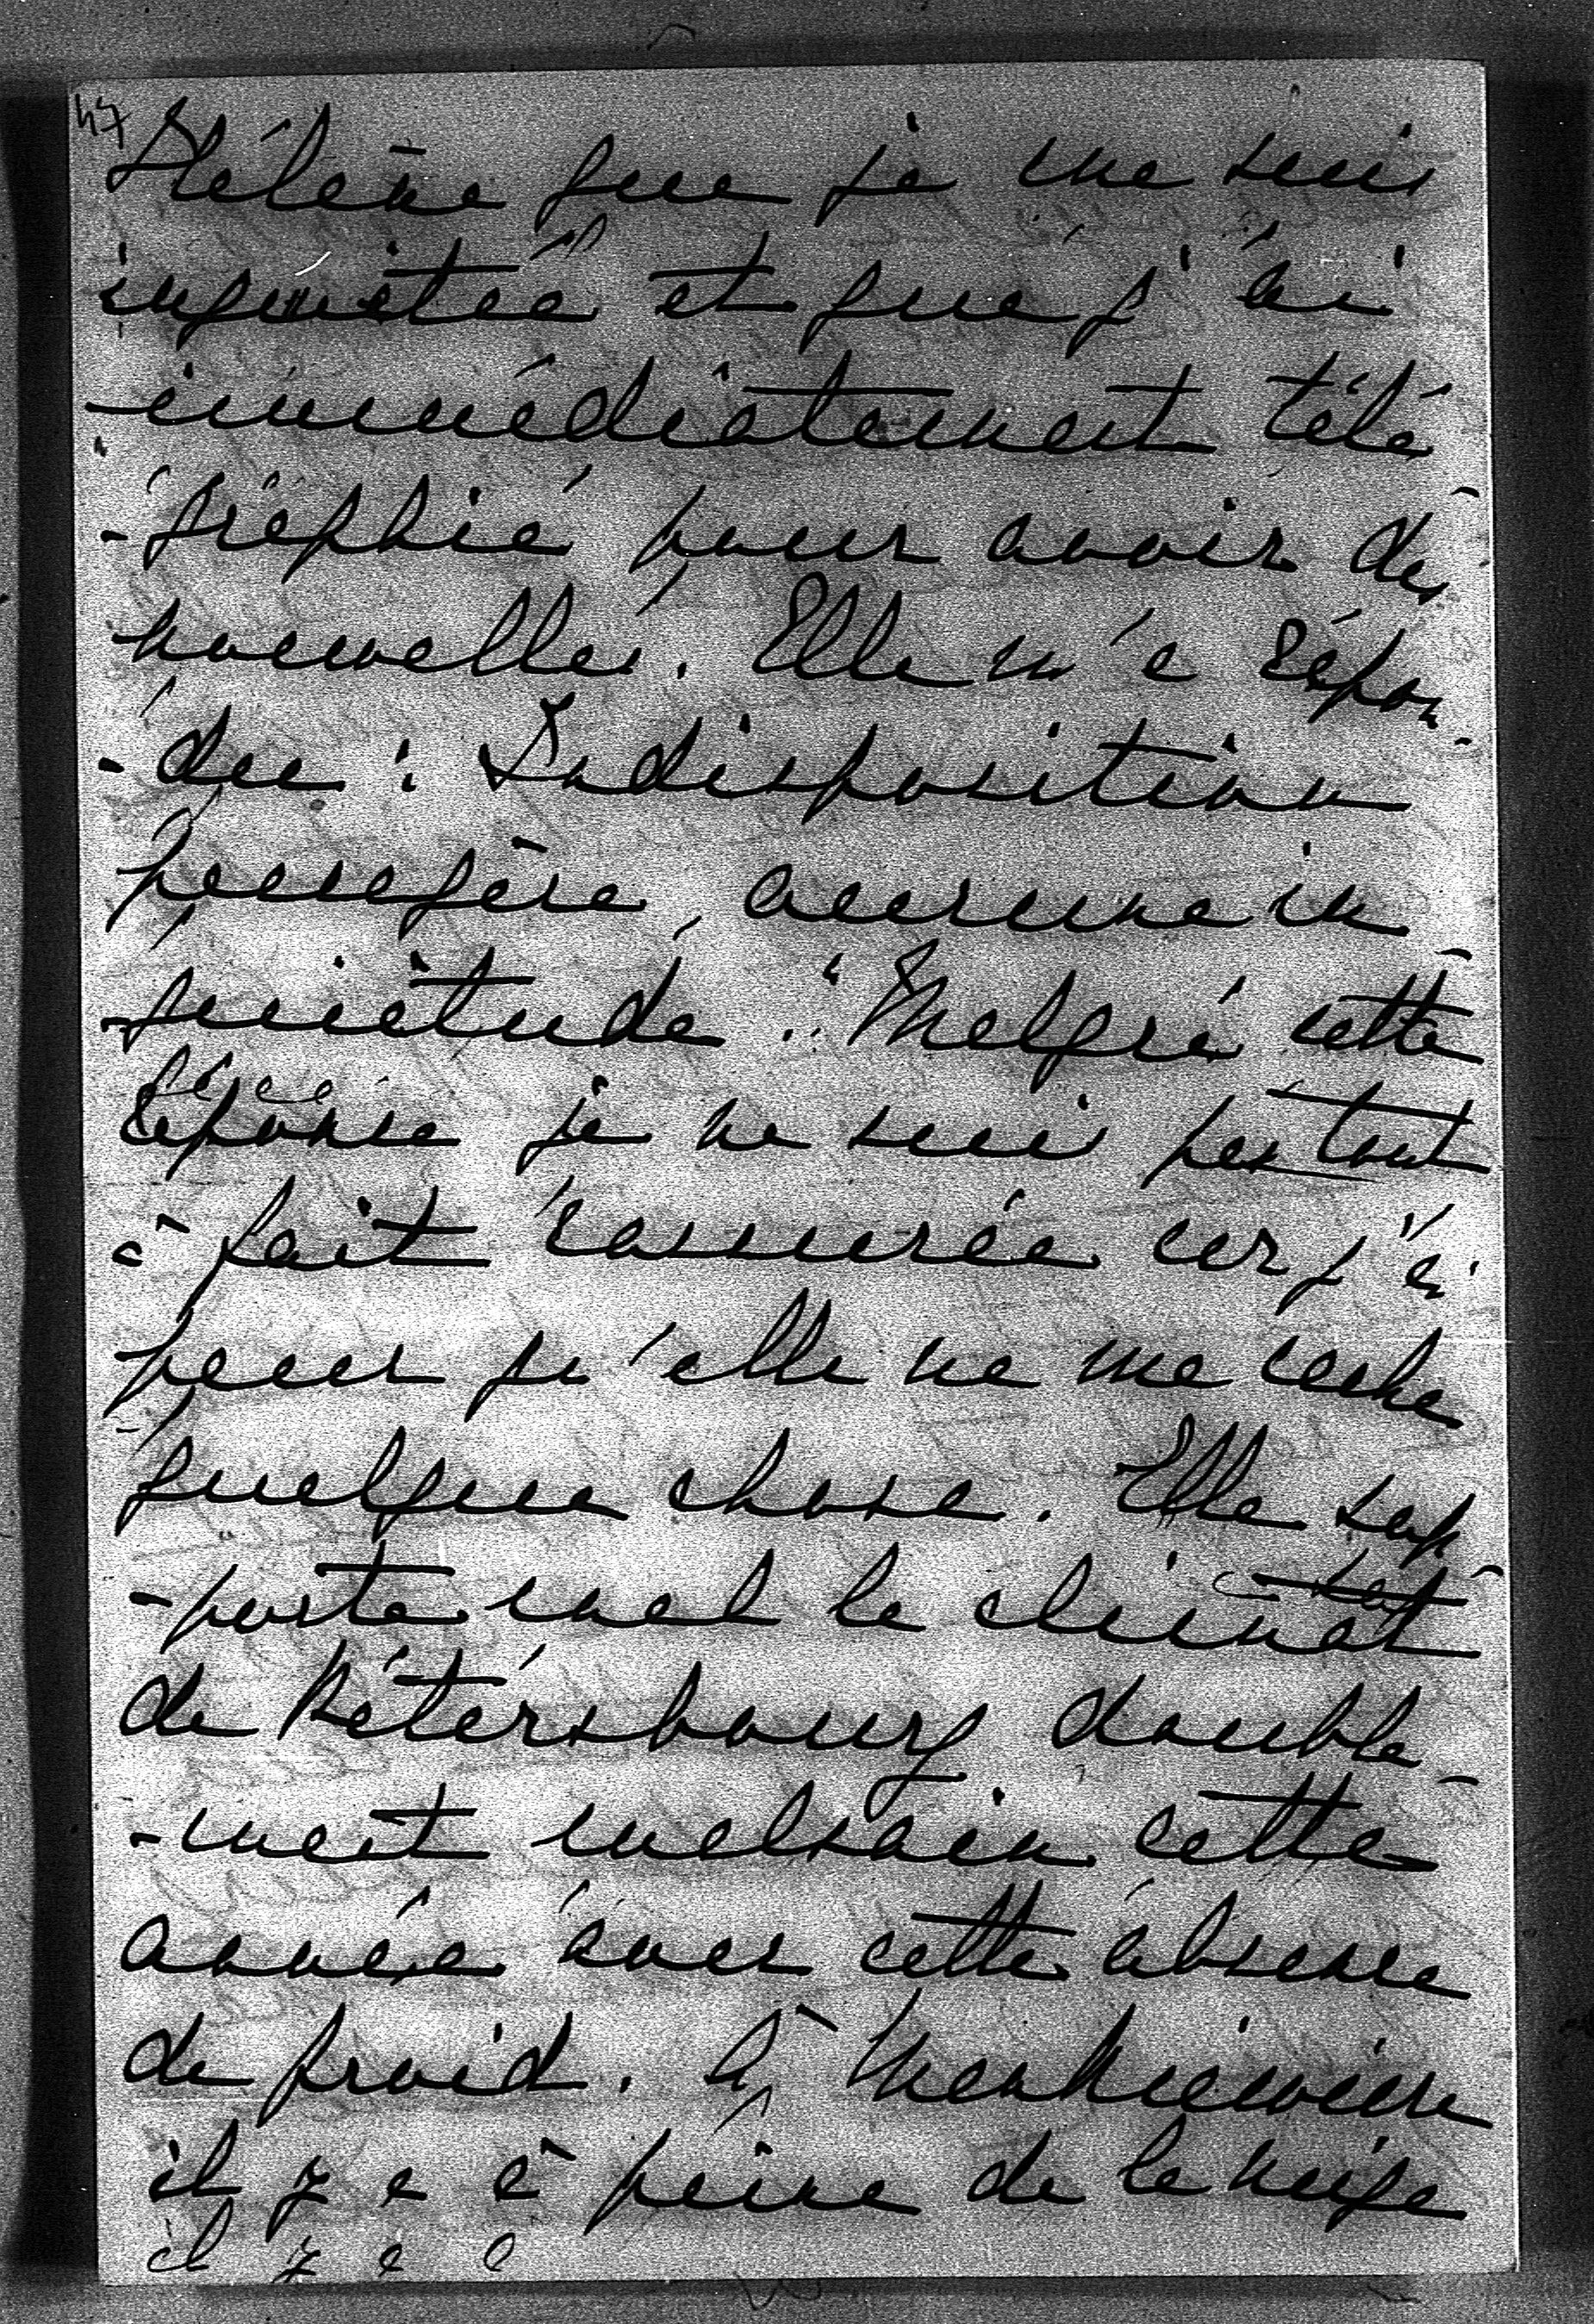 47
Hélène que je me suis
inquiétée et que j'ai
immédiatement télé
-graphié pour avoir des
nouvelles. Elle m'a répon-
-due : "Indisposition
passagère, aucune in-
-quiétude." Malgré cette
réponse je ne suis pas tout
à fait rassurée car j'ai
peur qu'elle ne me cache
quelque chose. Elle sup-
-porte mal le climat
de Pétersbourg double-
-ment malsain cette
année avec cette absence
de froid. À
il y a à peine de la neige
il y a à